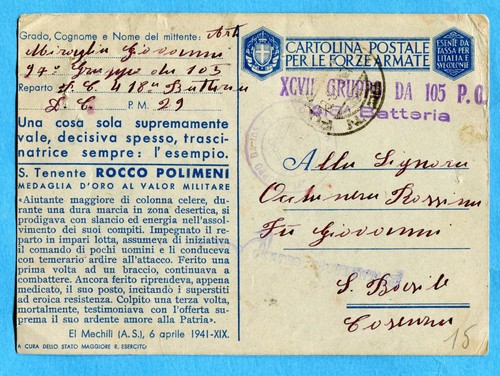 Grado, Cognome e Nome del mittente: Art
Miraglia Giovanni
97° Gruppo da 105
Reparto 
P. M. 29
Una cosa sola supremamente
vale, decisiva spesso, trasci-
natrice sempre: l'esempio.
S. Tenente ROCCO POLIMENI
MEDAGLIA D'ORO AL VALOR MILITARE
«Aiutante maggiore di colonna celere, du-
rante una dura marcia in zona desertica, si
prodigava con slancio ed energia nell'assol-
vimento dei suoi compiti. Impegnato il re-
parto in impari lotta, assumeva di iniziativa
il comando di pochi uomini e li conduceva
con temerario ardire all'attacco. Ferito una
prima volta ad un braccio, continuava a
combattere. Ancora ferito riprendeva, appena
medicato, il suo posto, incitando i superstiti
ad eroica resistenza. Colpito una terza volta,
mortalmente, testimoniava con l'offerta su-
prema il suo ardente amore alla Patria».
El Mechili (A. S.), 6 aprile 1941-XIX.
A CURA DELLO STATO MAGGIORE R. ESERCITO
CARTOLINA POSTALE
PER LE FORZE ARMATE
ESENTE DA
TASSA PER
L'ITALIA E
LE COLONIE
XCVII GRUPPO DA 105 P.C.
Batteria
Alla Signora
Rossina
Fu Giovanni
S. Basile
Cosenza
15